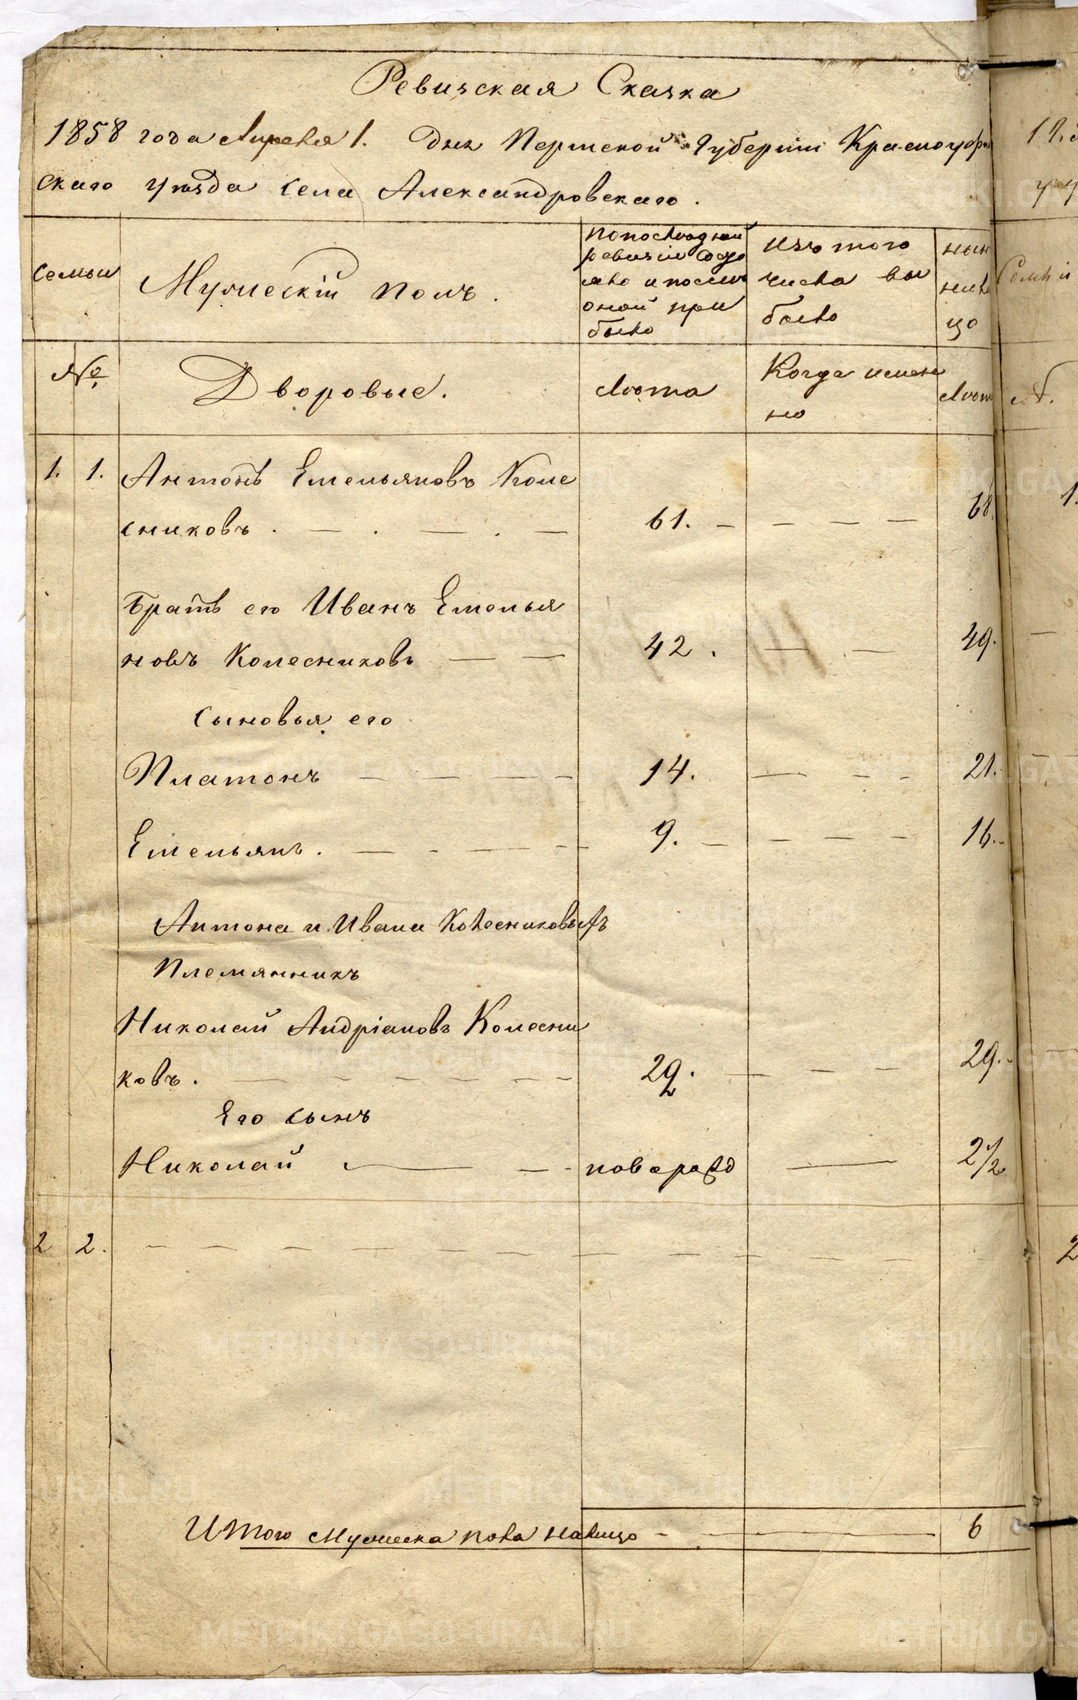 Ревизская Сказка
1858 года Апреля 1. дня Пермской Губернiи Красноуфим
скаго уѣзда села Александровскаго.
Семьи
Мужескiй полъ.
По послѣдней
ревизiи состо
яло и послѣ
оной при
было
Изъ того
числа вы
было
нын
№
Дворовые.
Лѣта
Когда имен
но
Лѣта
1. 1. Антонъ Емельяновъ Коле
сниковъ. 61. 68.
Братъ его Иванъ Емелья
новъ Колесниковъ 42. 49.
Сыновья его
Платонъ 14. 21.
Емельянъ. 9. 16.
Антона и Ивана Колесниковыхъ
Племянникъ
Николай Андрiановъ Колесни
ковъ. 29. 29.
Его сынъ
Николай новорожд 2 1/2
2 2.
Итого Мужеска пола налицо 6
METRIKI.GASO-URAL.RU